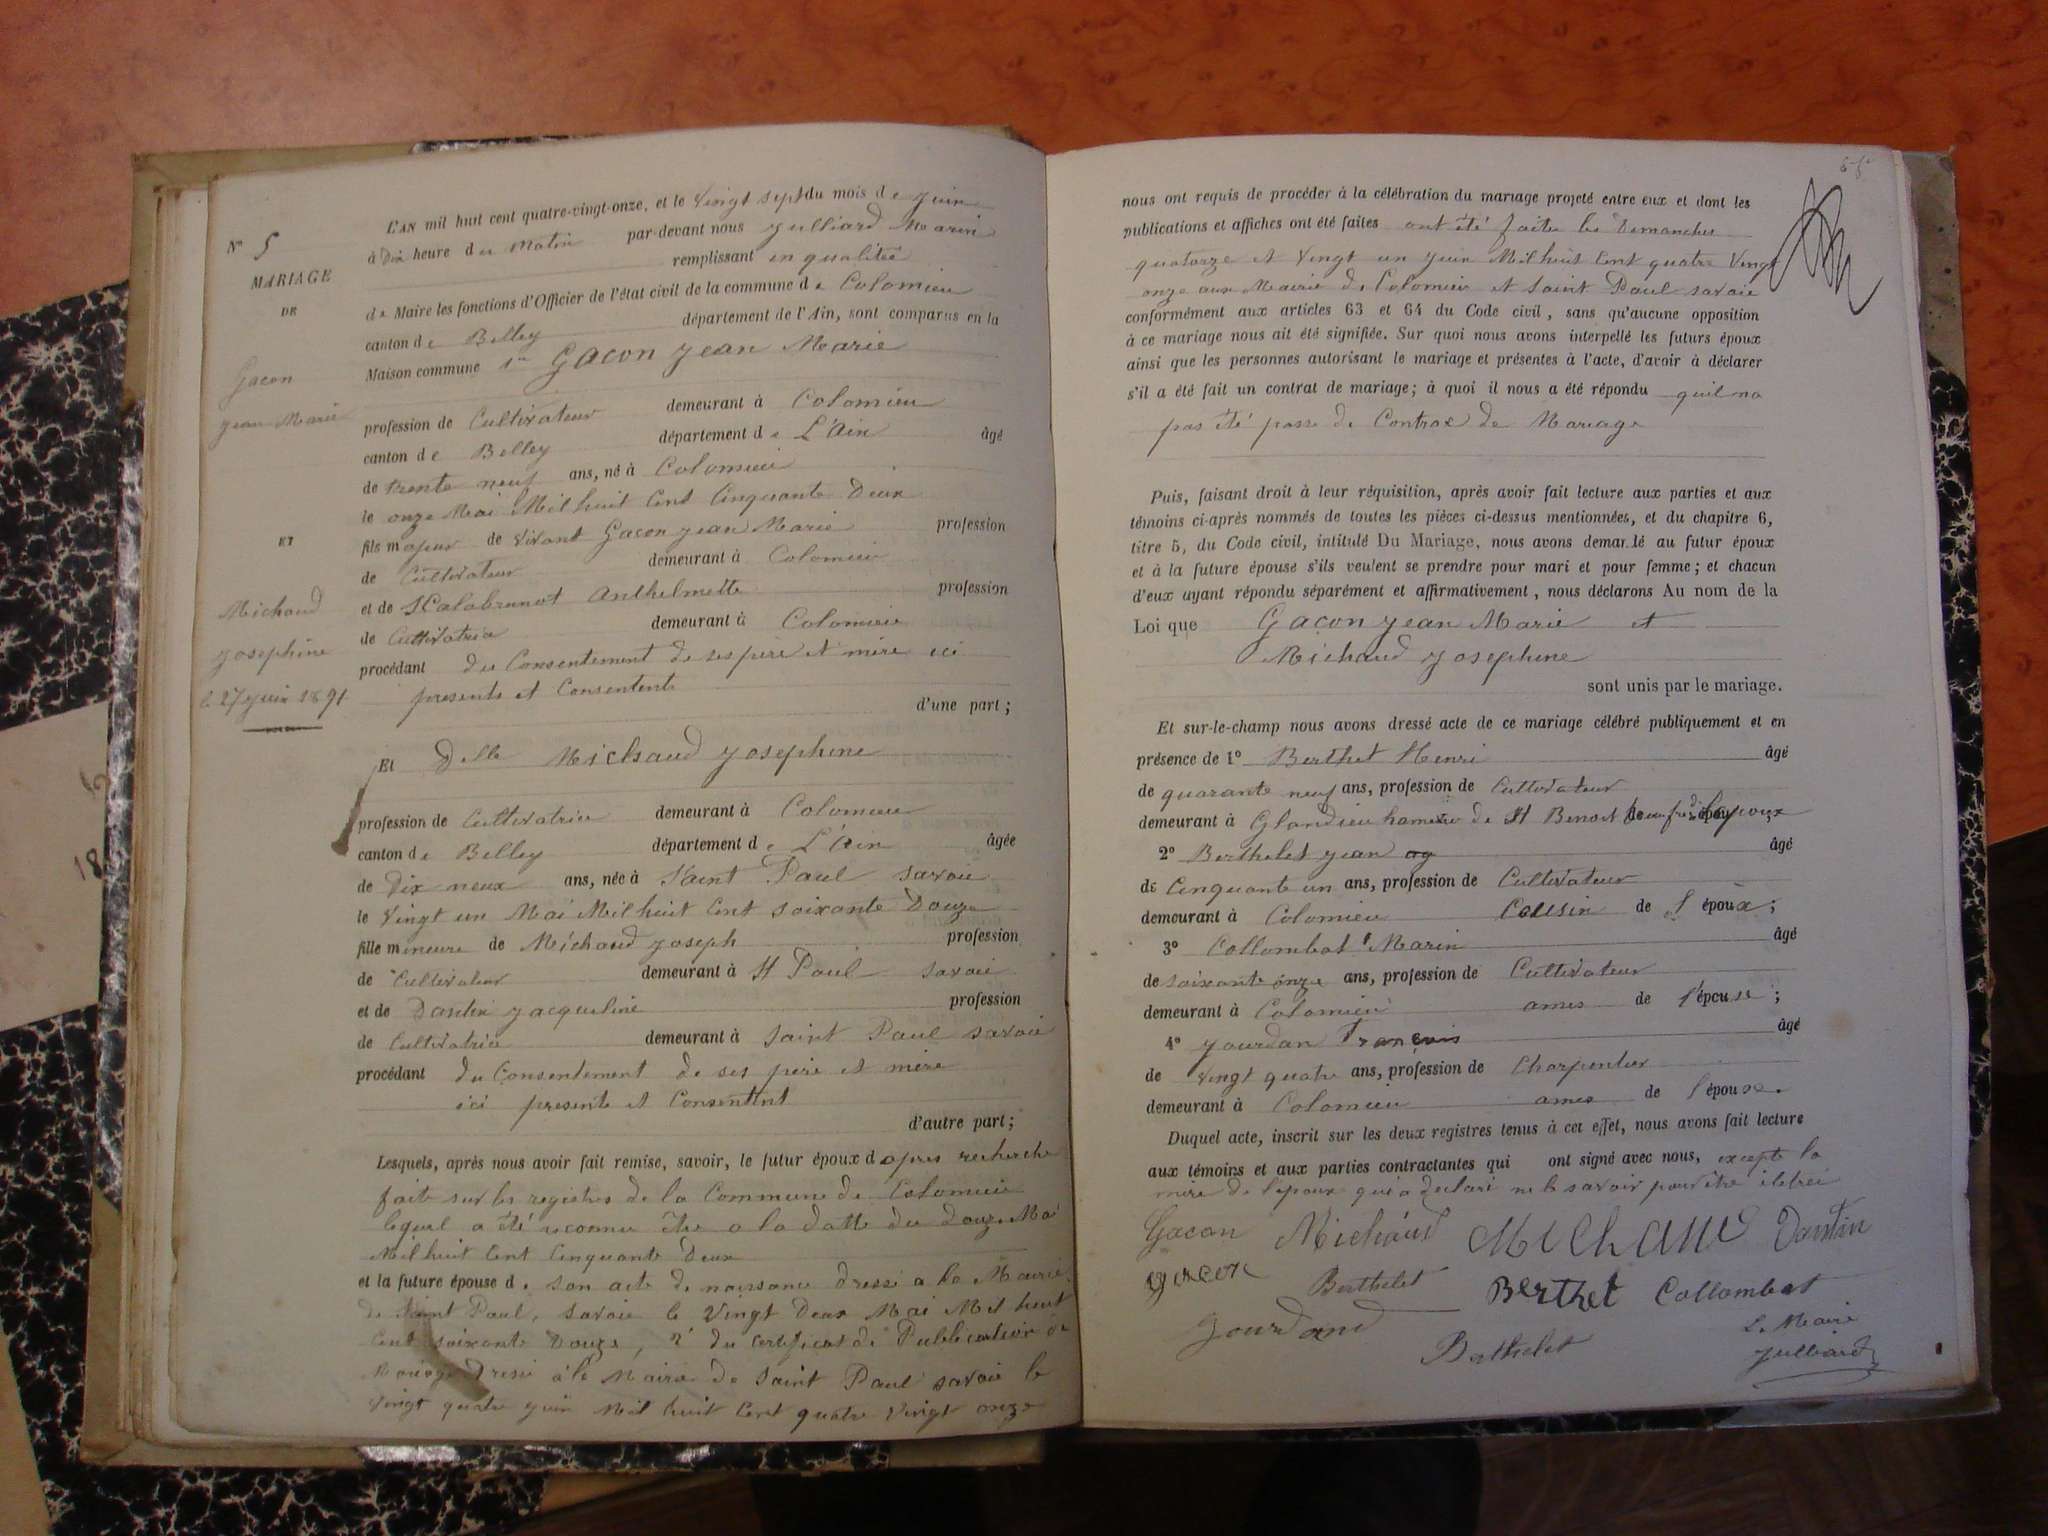 N° 5
MARIAGE
DE
Gacon
Jean Marie
ET
Michaud
Josephine
le 27 juin 1891
L'AN mil huit cent quatre-vingt-onze, et le Vingt sept du mois de juin
à Dix heure du Matin par-devant nous Julliard Marin
remplissant en qualitée
de Maire les fonctions d'Officier de l'état civil de la commune de Colomieu
canton de Belley département de l'Ain, sont comparus en la
Maison commune 1° Gacon Jean Marie
profession de Cultivateur demeurant à Colomieu
canton de Belley département de L'Ain âgé
de trente neuf ans, né à Colomieu
le onze Mai Mil huit Cent Cinquante Deux
fils majeur de vivant Gacon Jean Marie profession
de Cultivateur demeurant à Colomieu
et de SCalabrunot Anthelmette profession
de Cultivatrice demeurant à Colomieu
procédant du Consentement de ses père et mère ici
presents et Consentent
d'une part;
Et Delle Michaud Josephine
profession de Cultivatrice demeurant à Colomieu
canton de Belley département de L'Ain âgée
de Dix neux ans, née à Saint Paul Savoie
le Vingt un Mai Mil huit Cent soixante Douze
fille mineure de Michaud Joseph profession
de Cultivateur demeurant à St Paul Savoie
et de Dantin Jacqueline profession
de Cultivatrice demeurant à Saint Paul Savoie
procédant du Consentement de ses père et mère
ici presents et Consentent
d'autre part;
Lesquels, après nous avoir fait remise, savoir, le futur époux d apres recherche
faite sur les registres de la Commune de Colomieu
lequel a été reconnu être a la datte du douze Mai
Mil huit Cent Cinquante Deux
et la future épouse de son acte de naissance dressé a la Mairie
de Saint Paul, Savoie le Vingt Deux Mai Mil huit
Cent soixante Douze, 2° du certificat de Publication de
Mariage dressé à la Mairie de Saint Paul Savoie le
Vingt quatre juin Mil huit Cent quatre Vingt onze
nous ont requis de procéder à la célébration du mariage projeté entre eux et dont les
publications et affiches ont été faites ont été faite les Dimanches
quatorze et Vingt un juin Mil huit Cent quatre Vingt
onze aux Mairie de Colomieu et Saint Paul Savoie
conformément aux articles 63 et 64 du Code civil, sans qu'aucune opposition
à ce mariage nous ait été signifiée. Sur quoi nous avons interpellé les futurs époux
ainsi que les personnes autorisant le mariage et présentes à l'acte, d'avoir à déclarer
s'il a été fait un contrat de mariage; à quoi il nous a été répondu quil na
pas été passé de Contrat de Mariage
Puis, faisant droit à leur réquisition, après avoir fait lecture aux parties et aux
témoins ci-après nommés de toutes les pièces ci-dessus mentionnées, et du chapitre 6,
titre 5, du Code civil, intitulé Du Mariage, nous avons demandé au futur époux
et à la future épouse s'ils veulent se prendre pour mari et pour femme; et chacun
d'eux ayant répondu séparément et affirmativement, nous déclarons Au nom de la
Loi que Gacon Jean Marie et
Michaud Josephine
sont unis par le mariage.
Et sur-le-champ nous avons dressé acte de ce mariage célébré publiquement et en
présence de 1° Berthet Henri âgé
de quarante neuf ans, profession de Cultivateur
demeurant à Glandieu hameau de St Benoit
2° Berthelet Jean âgé
de Cinquante un ans, profession de Cultivateur
demeurant à Colomieu Cousin de l'époux;
3° Collombat Marin âgé
de soixante onze ans, profession de Cultivateur
demeurant à Colomieu amis de l'épouse;
4° Jourdan François âgé
de Vingt quatre ans, profession de Charpentier
demeurant à Colomieu amis de l'épouse.
Duquel acte, inscrit sur les deux registres tenus à cet effet, nous avons fait lecture
aux témoins et aux parties contractantes qui ont signé avec nous, excepté la
mère de l'époux qui a declaré ne le savoir pour être iletréé
Gacon Michaud Michaud Dantin
gacon Berthelet Berthet Collombat
Jourdand Berthelet Le Maire
Julliard